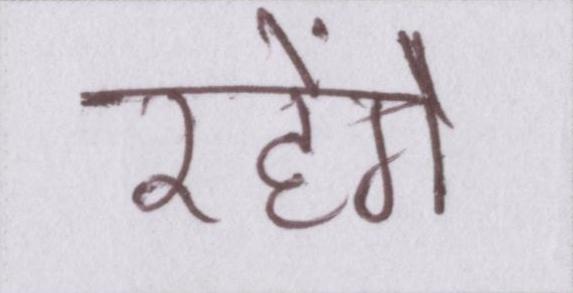 रहेंगे